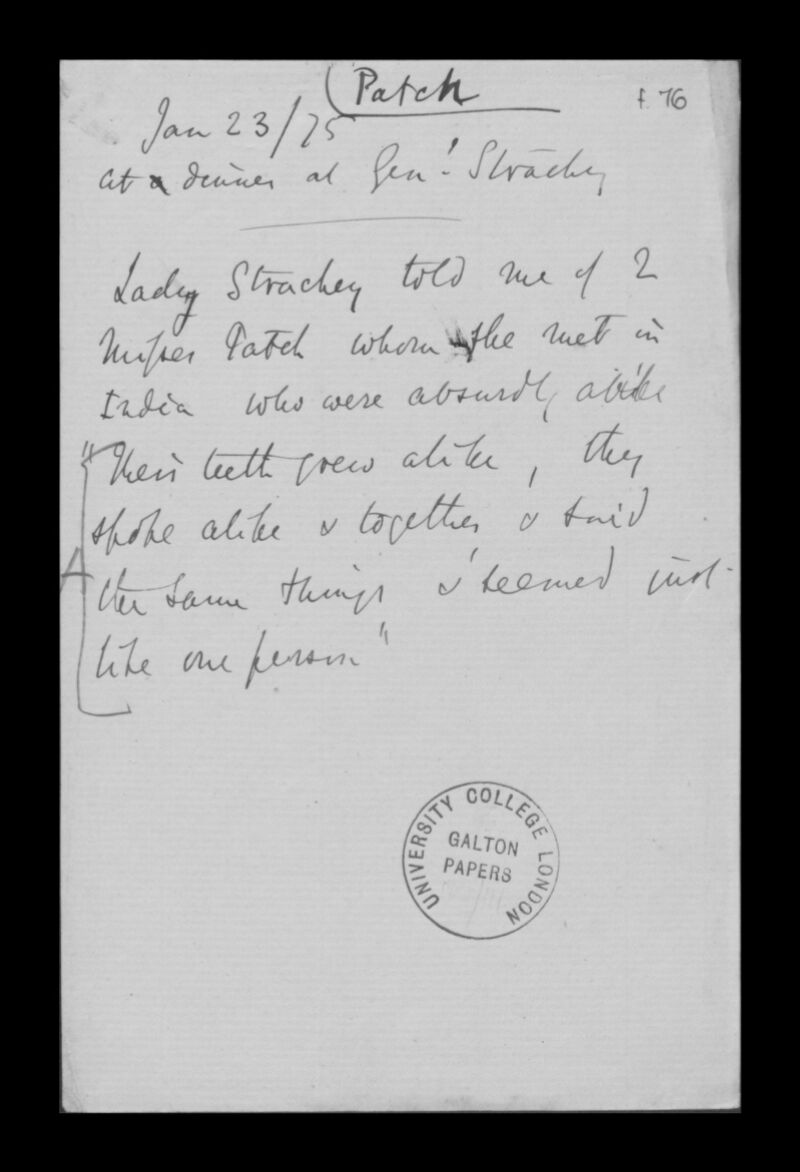 (Patch
f. 76
Jan 23/75
at a dinner at Genl. Strachey
Lady Strachey told me of 2
Misses Patch whom she met in
India who were absurdly alike
"Their teeth grew alike, they
spoke alike & together & said
A
the same things & seemed just
like one person"
UNIVERSITY COLLEGE LONDON
GALTON
PAPERS